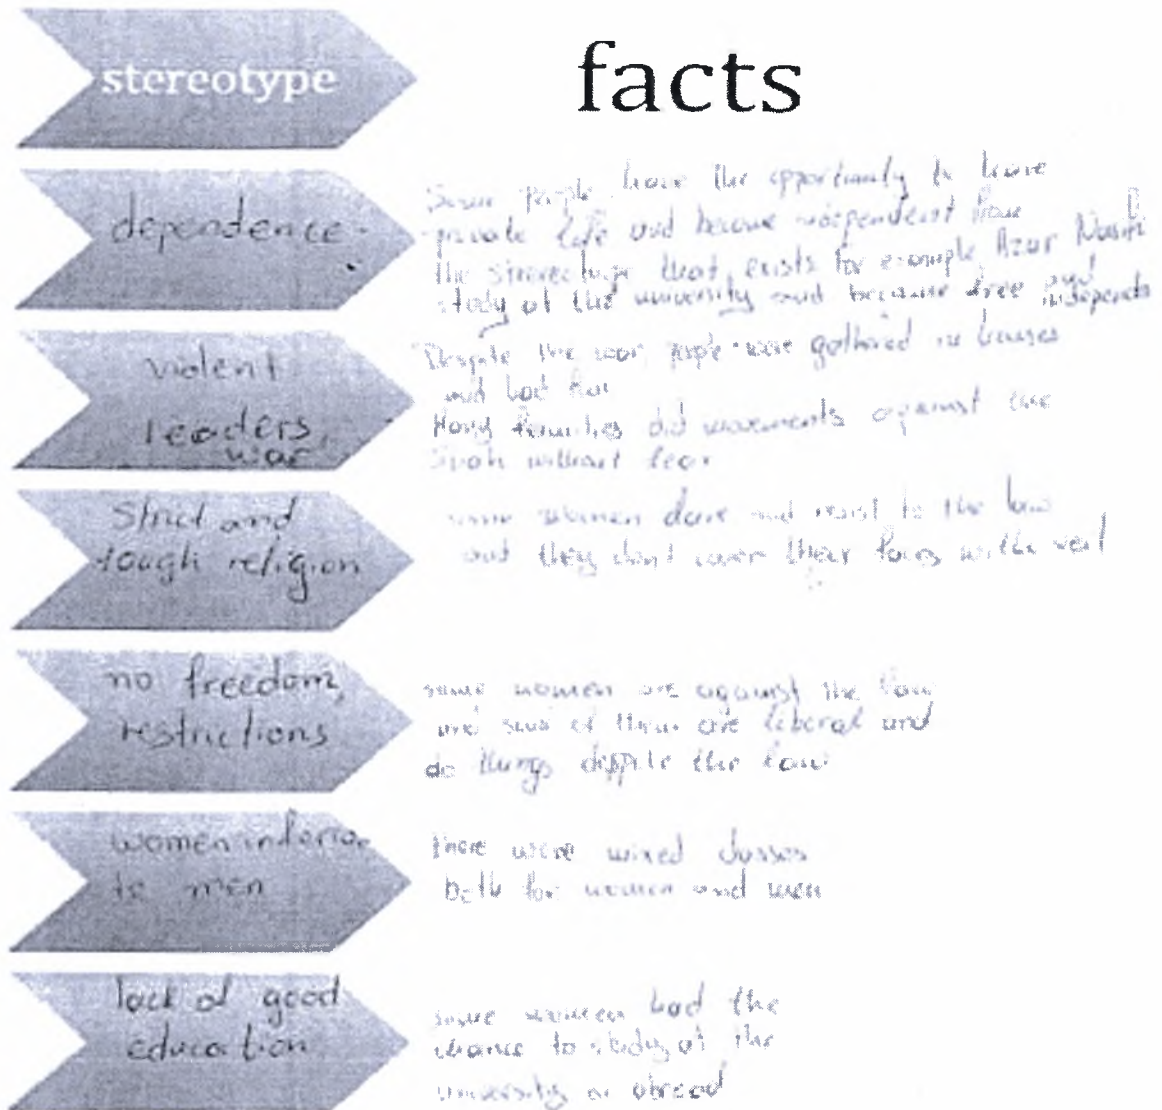 stereotype
facts
dependence
Some people have the opportunity to have
private life and become independent from
the that exists for example Azar Nasiri
study at the university and because free and
independ
violent
leaders,
war
Despite the war people were gathered in houses
and had fun
Many families did movements against the
Shah without fear
Strict and
tough religion
some women dare and resist to the law
and they don't cover their faces with veil
no freedom,
restrictions
some women are against the law
and some of them are liberal and
do things despite the law
women inferior
to men
there were mixed classes
both for women and men
lack of good
education
some women had the
chance to study at the
university or abroad